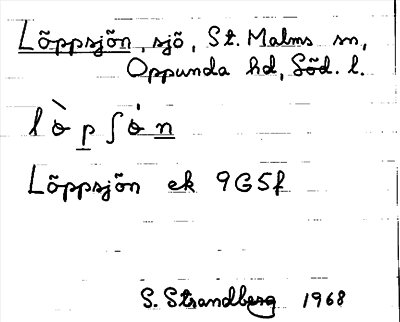 Löppsjön, sjö, St. Malms sn,
Oppunda hd, Söd. l.
l ò p ʃ ó n
Löppsjön ek 9G5f
S. Strandberg 1968